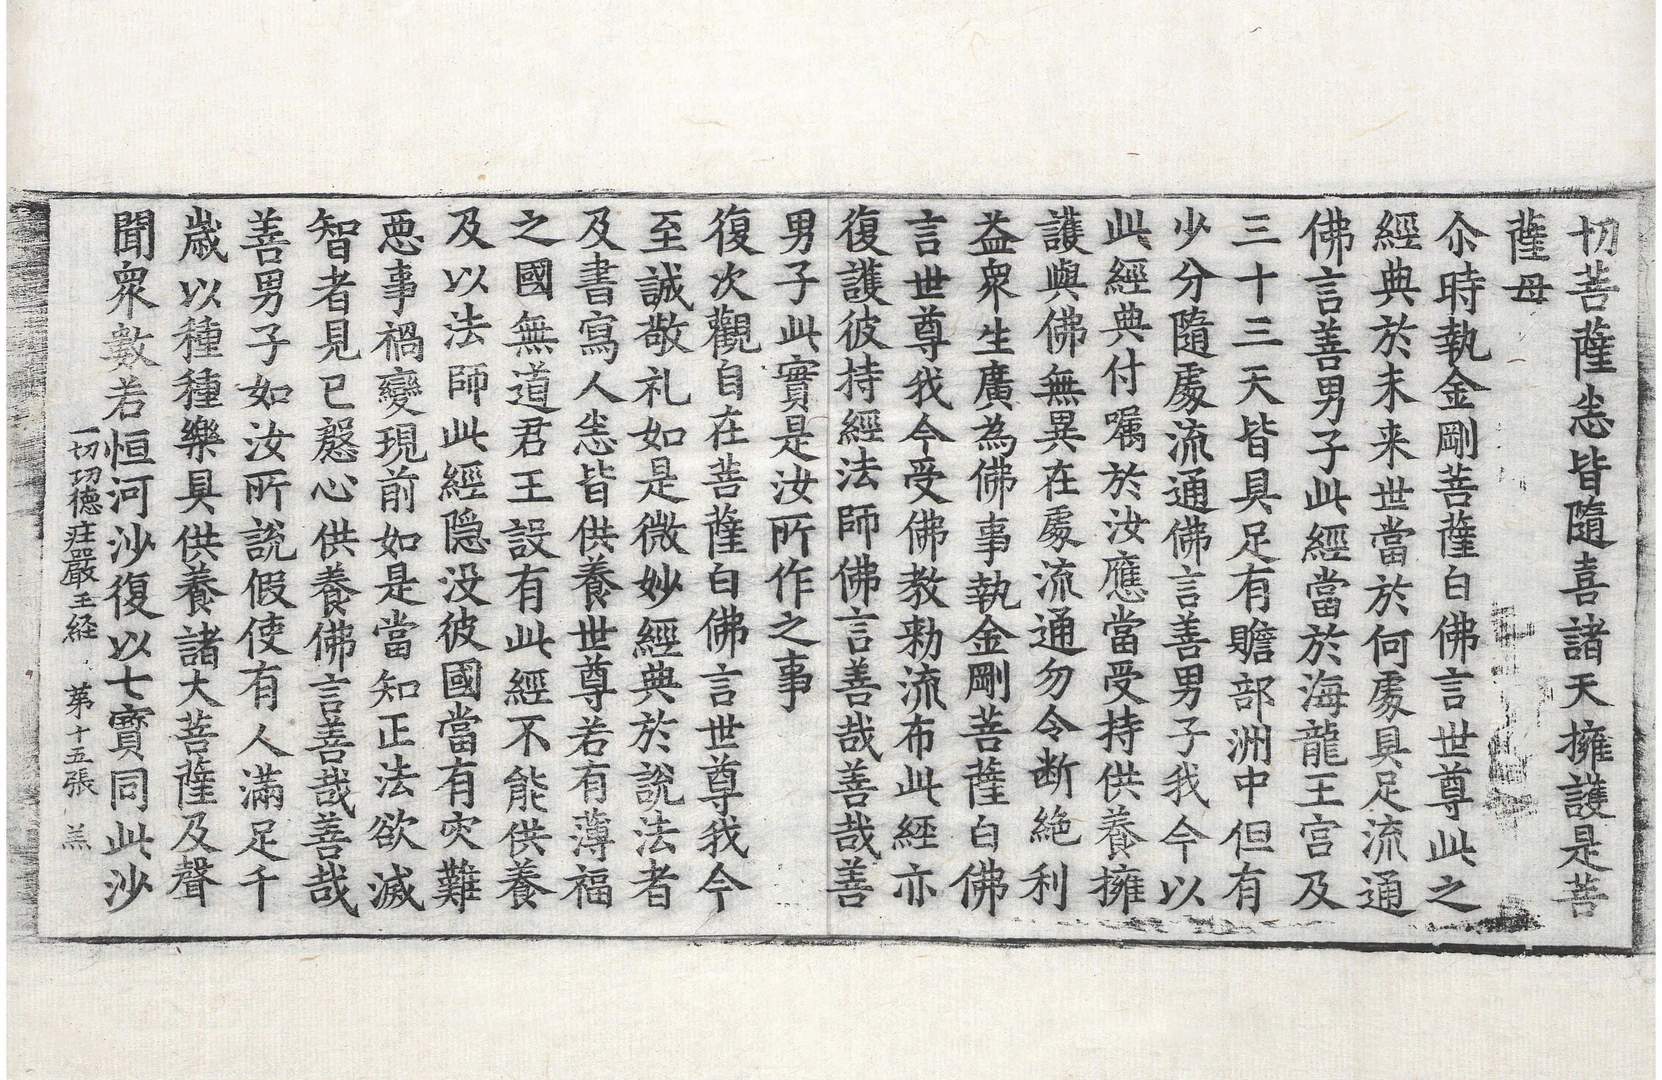 切菩薩悉皆隨喜諸天擁護是菩
薩母
尒時執金剛菩薩白佛言世尊此之
經典於末来世當於何處具足流通
佛言善男子此經當於海龍王宫及
三十三天皆具足有贍部洲中但有
少分隨處流通佛言善男子我今以
此經典付嘱於汝應當受持供養擁
護與佛無異在處流通勿令断絶利
益衆生廣為佛事執金剛菩薩白佛
言世尊我今受佛教勑流布此経亦
復護彼持經法師佛言善哉善哉善
男子此實是汝所作之事
復次觀自在菩薩白佛言世尊我今
至誠敬礼如是微妙經典於說法者
及書寫人悉皆供養世尊若有薄福
之國無道君王設有此經不能供養
及以法師此經隠没彼國當有灾難
惡事禍變現前如是當知正法欲滅
智者見已慇心供養佛言善哉善哉
善男子如汝所說假使有人滿足千
歳以種種樂具供養諸大菩薩及聲
聞衆數若恒河沙復以七寶同此沙
一切㓛德庄嚴王経 苐十五張 羔